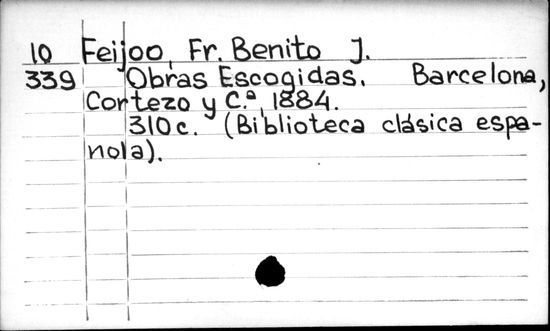 10 Feijoo, Fr. Benito J.
339 Obras Escogidas. Barcelona,
Cortezo y C.ª, 1884.
310 c. (Biblioteca clásica espa-
nola).